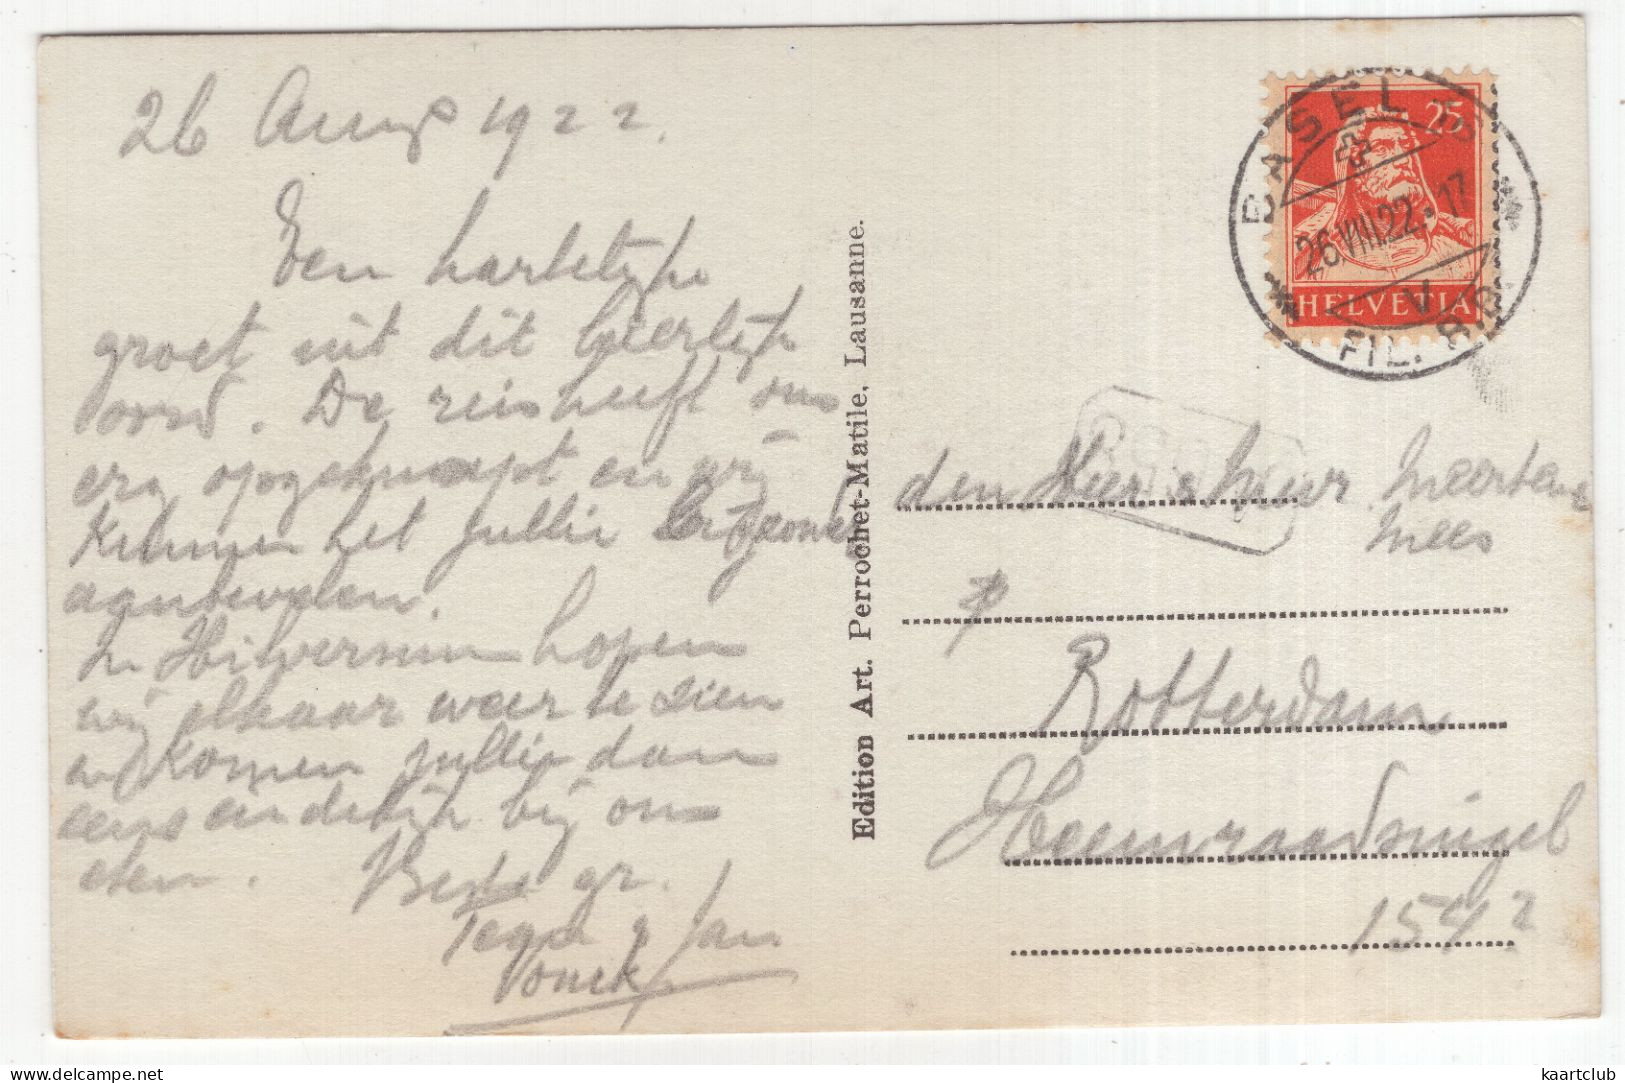 26 Aug 1922.
Een hartelijke
groet uit dit heerlijk
oord. De reis heeft ons
erg opgeknapt en wij
kunnen het jullie
aanbevelen.
In Hilversum hopen
wij elkaar weer te zien
en komen jullie dan
eens eindelijk bij ons
eten. Beste gr.
& Jan
Vonck
Edition Art. Perrochet-Matile, Lausanne.
BASEL
26.VIII.22.17
V
FIL.
25
HELVETIA
den Heer Meertens
Mees
Rotterdam
Heemraadsingel
154
delcampe.net
kaartclub